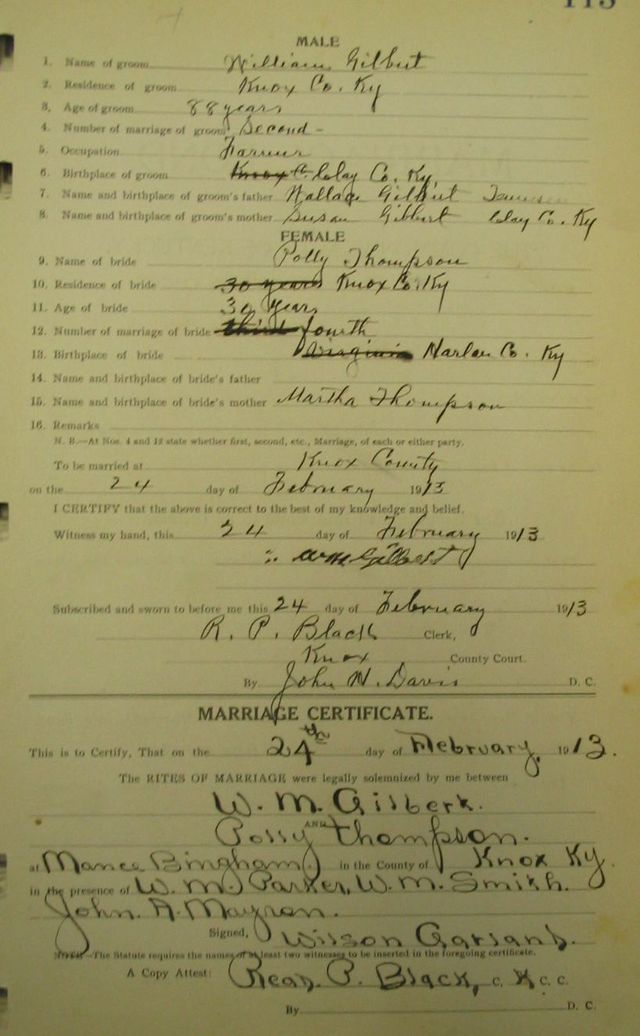 115
MALE
1. Name of groom William Gilbert
2. Residence of groom Knox Co. Ky
3. Age of groom 88 years
4. Number of marriage of groom Second -
5. Occupation Farmer
6. Birthplace of groom Knox Clay Co. Ky.
7. Name and birthplace of groom's father Wallace Gilbert
8. Name and birthplace of groom's mother Susan Gilbert Clay Co. Ky
FEMALE
9. Name of bride Polly Thompson
10. Residence of bride 30 years Knox Co. Ky
11. Age of bride 30 years
12. Number of marriage of bride third fourth
13. Birthplace of bride Virginia Harlan Co. Ky
14. Name and birthplace of bride's father
15. Name and birthplace of bride's mother Martha Thompson
16. Remarks
N. B.—At Nos. 4 and 12 state whether first, second, etc., Marriage, of each or either party.
To be married at Knox County
on the 24 day of February 1913
I CERTIFY that the above is correct to the best of my knowledge and belief.
Witness my hand, this 24 day of February 1913
Wm Gilbert
Subscribed and sworn to before me this 24 day of February 1913
R. P. Black Clerk,
Knox County Court.
By John H. Davis D. C.
MARRIAGE CERTIFICATE.
This is to Certify, That on the 24th day of February, 1913.
The RITES OF MARRIAGE were legally solemnized by me between
W. M. Gilbert.
AND
Polly Thompson.
at Mance Bingham, in the County of Knox Ky.
in the presence of W. M. Parker, W. M. Smith.
John. A. Mayron.
Signed, Wilson Garland.
NOTE.—The Statute requires the names of at least two witnesses to be inserted in the foregoing certificate.
A Copy Attest: Read. P. Black, C. K C. C.
By D. C.